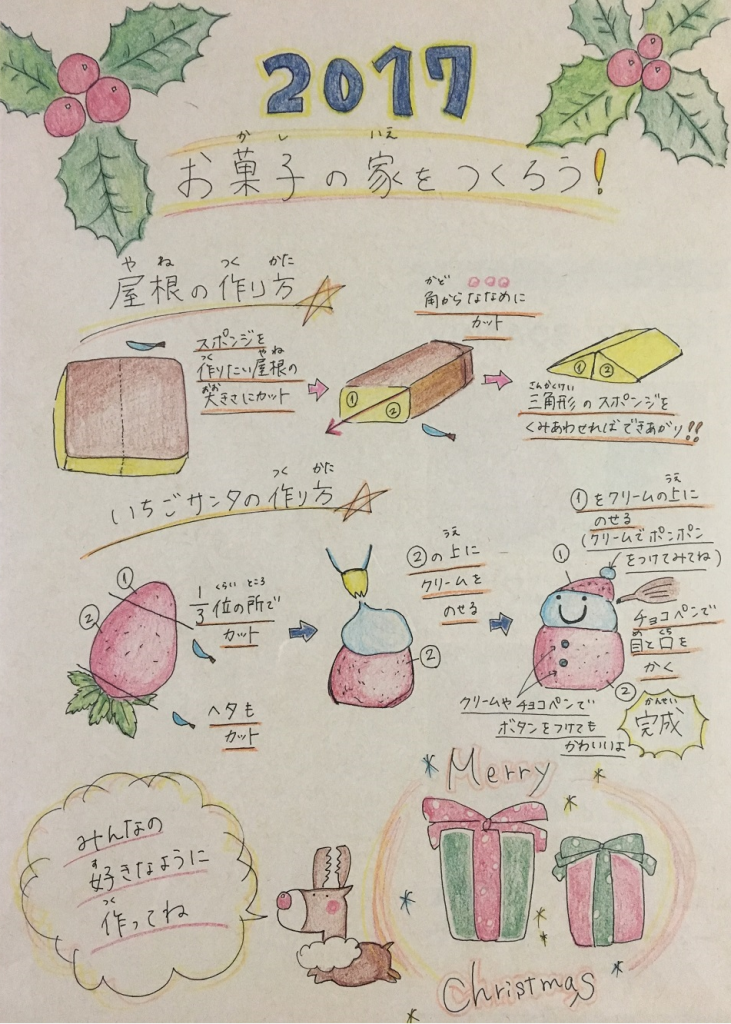 2017
お菓子の家をつくろう!
かし
いえ
屋根の作り方
やね
つく
かた
スポンジを
作りたい屋根の
つく
やね
大きさにカット
おお
角からななめに
かど
カット
① ②
① ②
三角形のスポンジを
さんかくけい
くみあわせればできあがり!!
いちごサンタの作り方
つく
かた
①
②
1/3位の所で
くらい
ところ
カット
ヘタも
カット
②の上に
うえ
クリームを
のせる
②
①をクリームの上に
うえ
のせる
(クリームでポンポン
をつけてみてね)
①
チョコペンで
目と口を
め
くち
かく
②
クリームやチョコペンで
ボタンをつけても
かわいいよ
完成
かんせい
みんなの
好きなように
す
作ってね
つく
Merry
Christmas